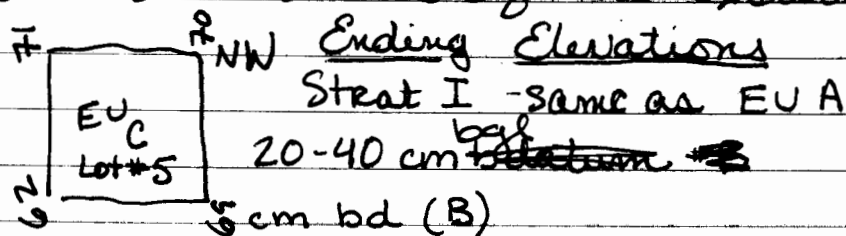 NW Ending Elevations
Strat I - same as EU A
EU C
Lot #5
20-40 cm bgs
cm bd (B)